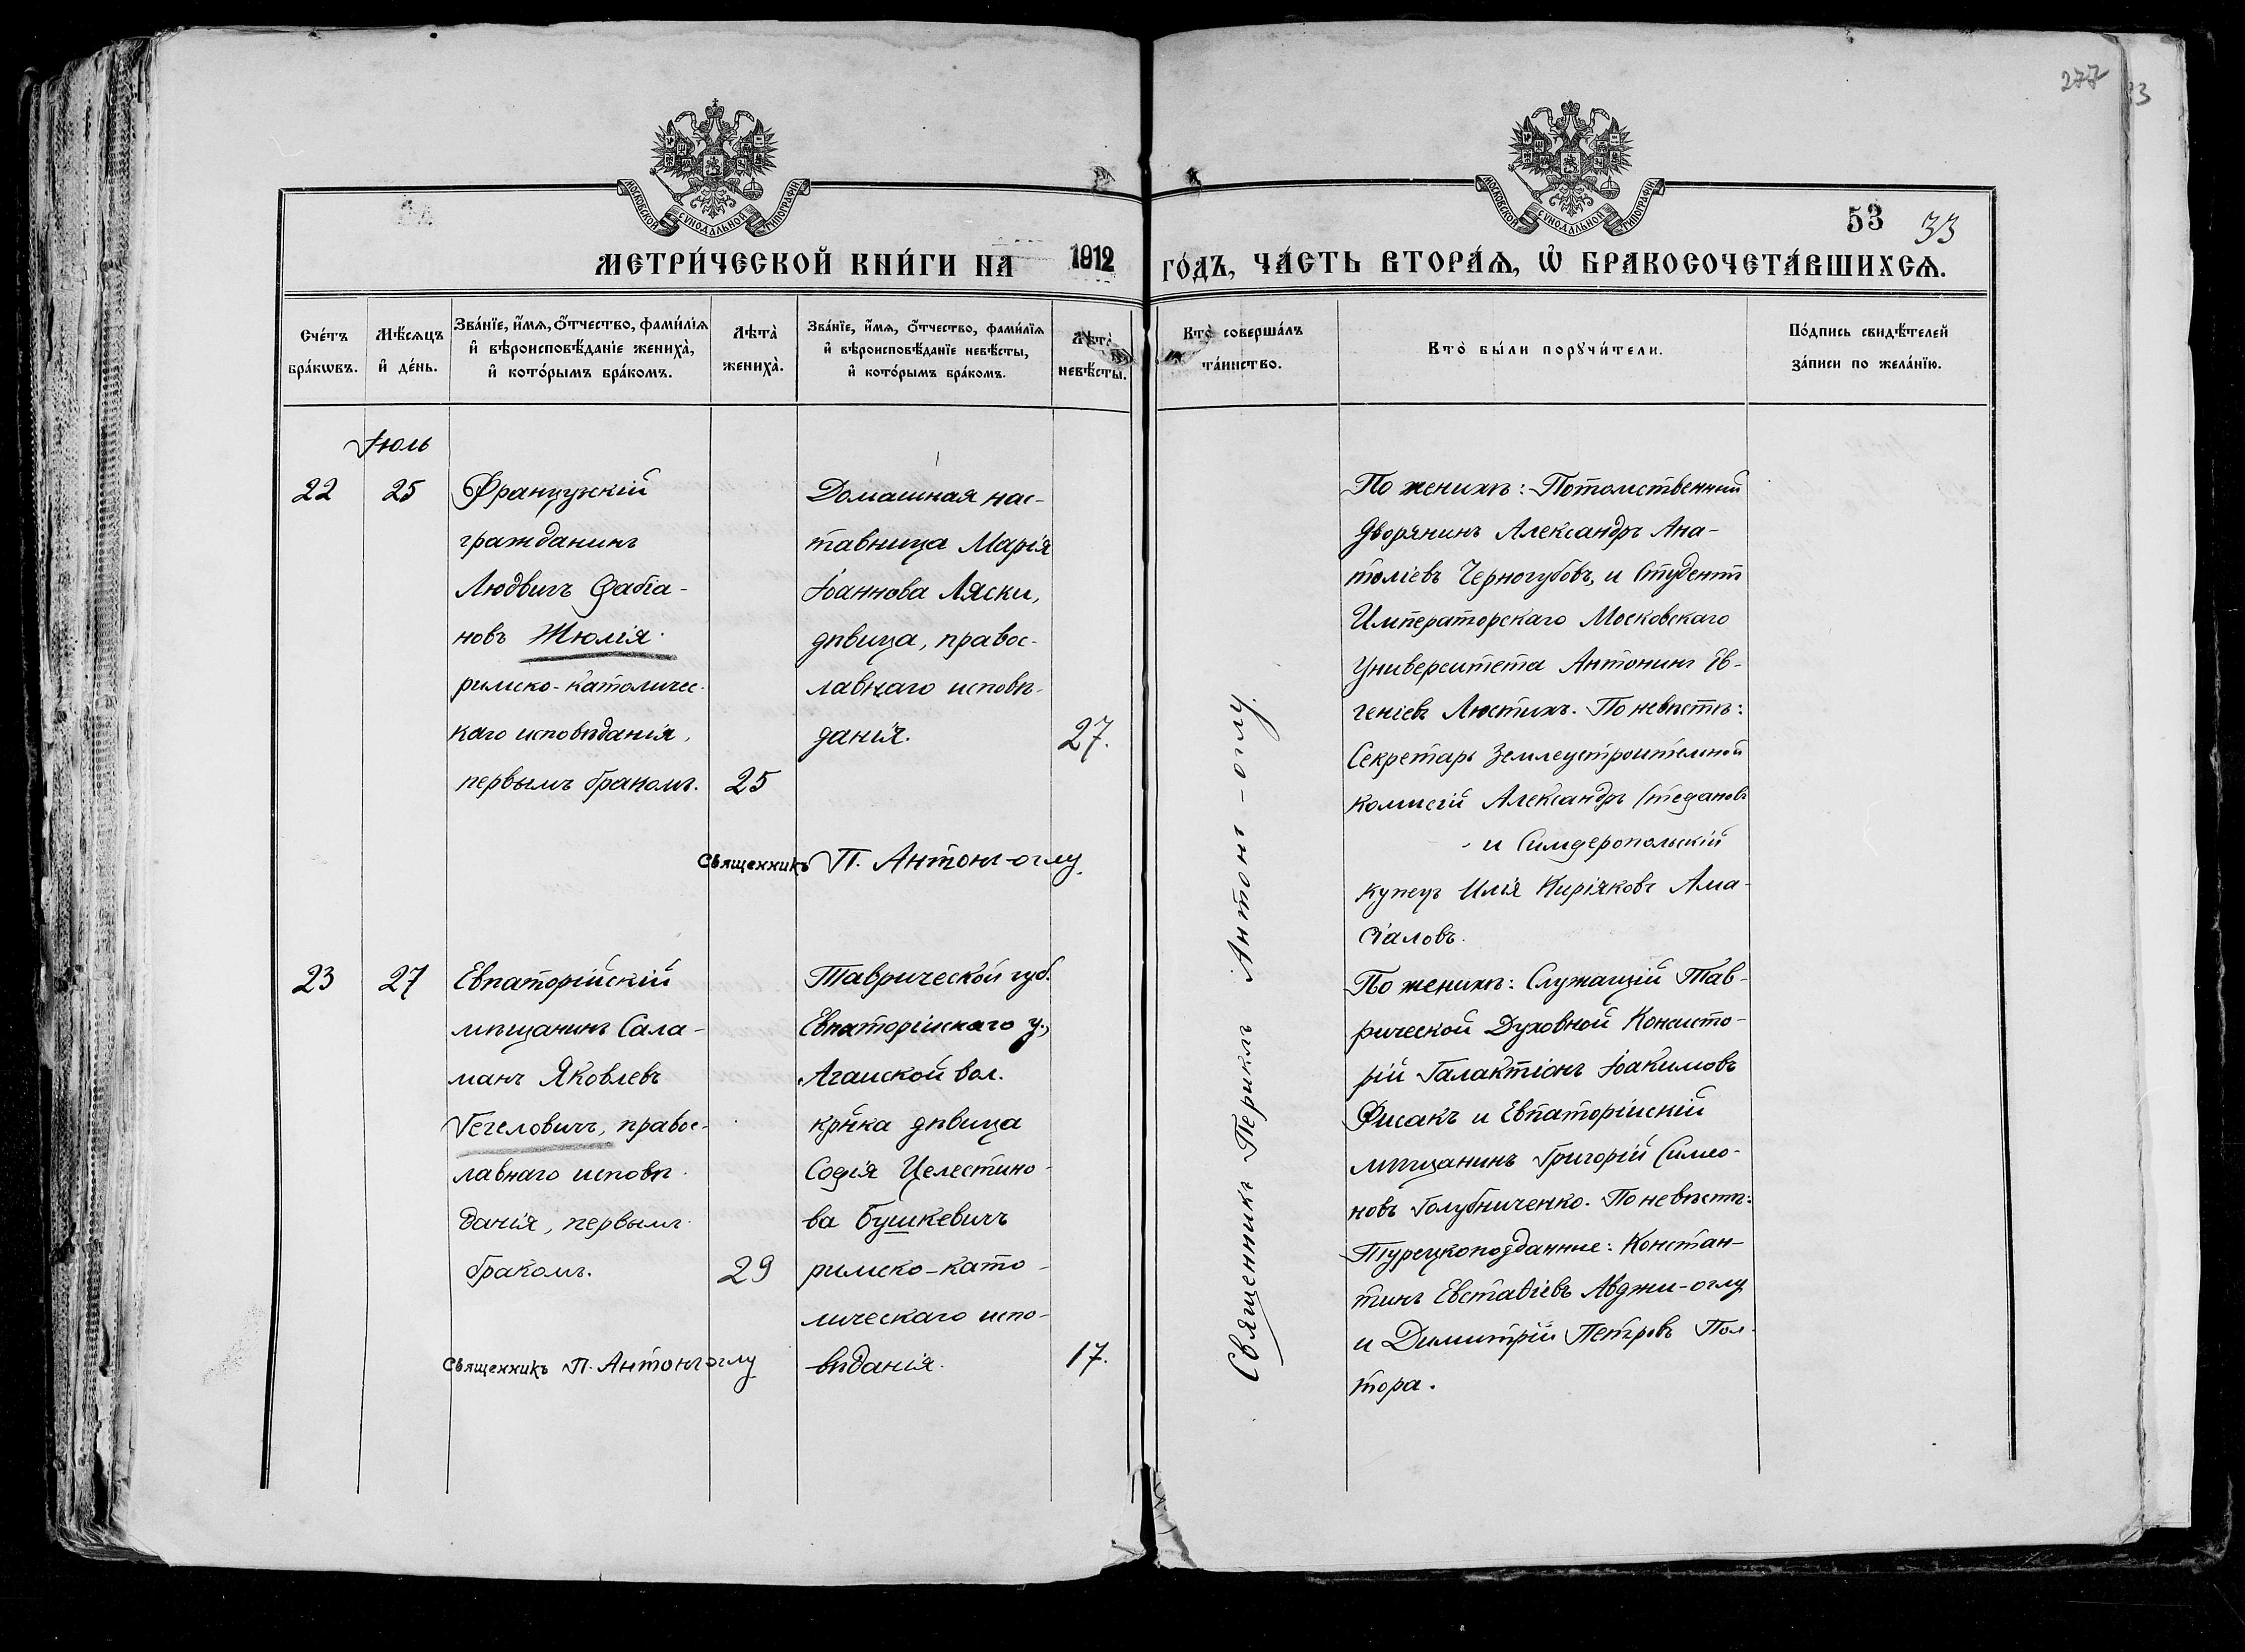 277
33
МОСКОВСКОЙ СѴНОДАЛЬНОЙ ТИПОГРАФІИ
МОСКОВСКОЙ СѴНОДАЛЬНОЙ ТИПОГРАФІИ
53 33
МЕТРИ́ЧЕСКОЙ КНИ́ГИ НА 1912 ГО́ДЪ, ЧА́СТЬ ВТОРА́Ѧ, Ѡ҆ БРАКОСОЧЕТА́ВШИХСѦ.
Сче́тъ
бра́кѡвъ.
Мѣ́сѧцъ
и҆ де́нь.
Зва́нїе, и҆́мѧ, ѻ҆́тчество, фами́лїѧ
и҆ вѣроисповѣ́данїе жениха̀,
и҆ кото́рымъ бра́комъ.
Лѣта̀
жениха̀.
Зва́нїе, и҆́мѧ, ѻ҆́тчество, фами́лїѧ
и҆ вѣроисповѣ́данїе невѣ́сты,
и҆ кото́рымъ бра́комъ.
Лѣта̀
невѣ́сты.
Кто̀ соверша́лъ
та́инство.
Кто̀ бы́ли порꙋчи́тели.
По́дпись свидѣ́телей
за́писи по жела́нїю.
Іюль
22
25
Французскій
гражданинъ
Людвигъ Фабіа-
новъ Жюлія.
римско-католичес-
каго исповѣданія,
первымъ бракомъ.
25
Домашная нас-
тавница Марія
Іоаннова Ляски,
дѣвица, правос-
лавнаго исповѣ-
данія.
27.
Священникъ П. Антонъ-оглу.
Священникъ Периклъ Антонъ-оглу.
По женихѣ: Потомственный
Дворянинъ Александръ Ана-
толіевъ Черногубовъ, и Студентъ
Императорскаго Московскаго
Университета Антонинъ Ев-
геніевъ Люстихъ. По невѣстѣ:
Секретарь Землеустроительной
комисіи Александръ Стефановъ
- и Симферопольскій
купецъ Илія Киріяковъ Ама-
зіаловъ.
23
27
Евпаторійскій
мѣщанинъ Сала-
манъ Яковлевъ
Гегеловичъ, правос-
лавнаго исповѣ-
данія, первымъ
бракомъ.
29
Священникъ П. Антонъ-оглу
Таврической губ.
Евпаторійскаго у.,
Агайской вол.
кр̃нка дѣвица
Софія Целестино-
ва Бушкевичъ
римско-като-
лическаго испо-
вѣданія.
17.
По женихѣ: Служащій Тав-
рической Духовной Консисто-
ріи Галактіонъ Іоакимовъ
Фисакъ и Евпаторійскій
мѣщанинъ Григорій Симео-
новъ Голубниченко. По невѣстѣ:
Турецкоподданные: Констан-
тинъ Евстаѳіевъ Авджи-оглу
и Димитрій Петровъ Пол-
тора.